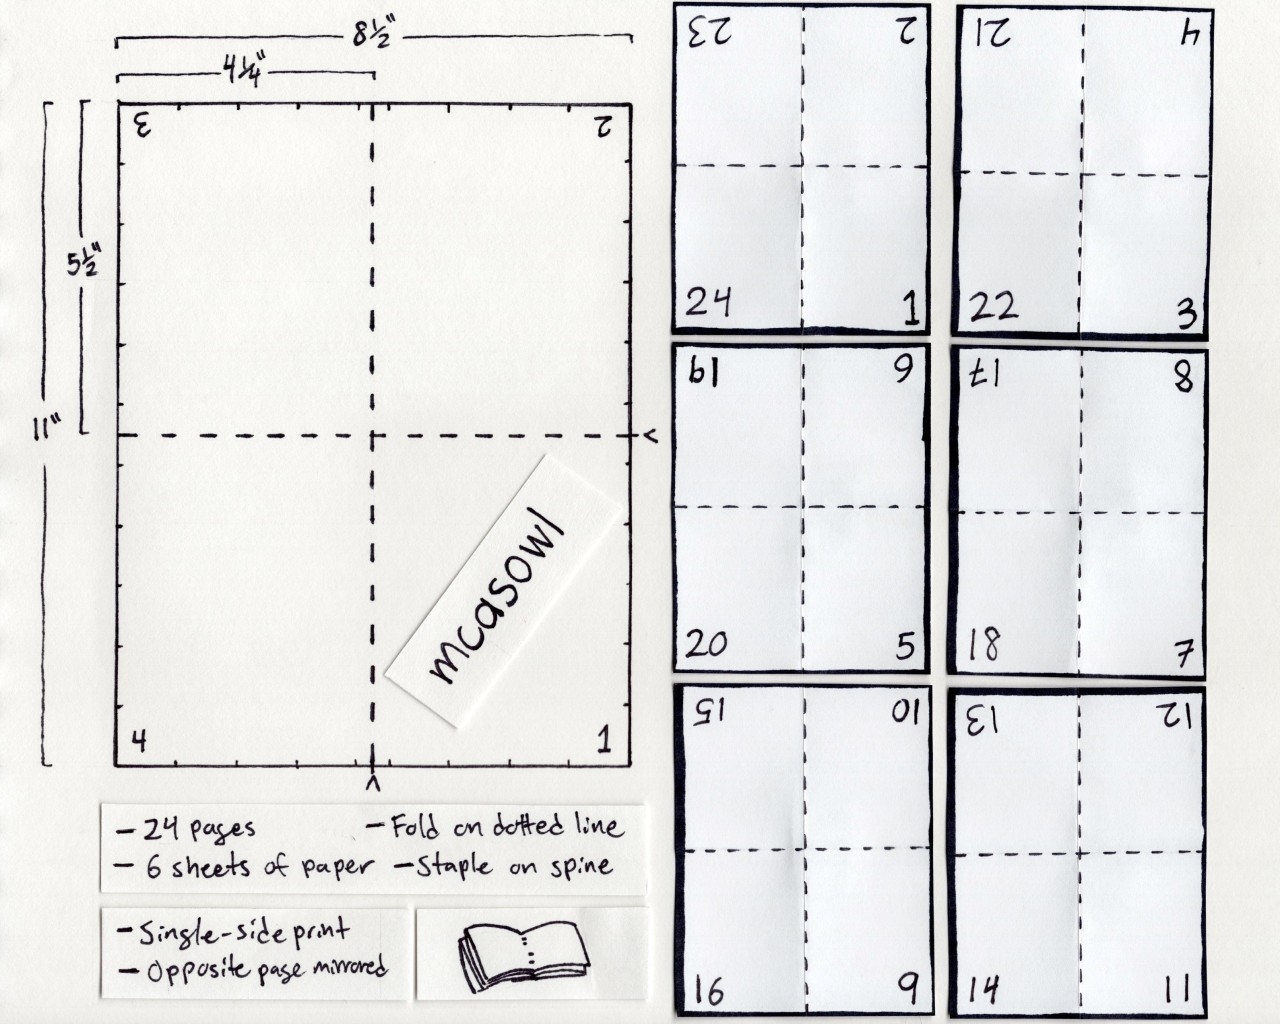 8½"
4¼"
3 2
5½"
11"
mcasowl
4 1
- 24 pages - Fold on dotted line
- 6 sheets of paper - Staple on spine
- Single-side print
- Opposite page mirrored
23 2
24 1
21 4
22 3
19 6
20 5
17 8
18 7
15 10
16 9
13 12
14 11